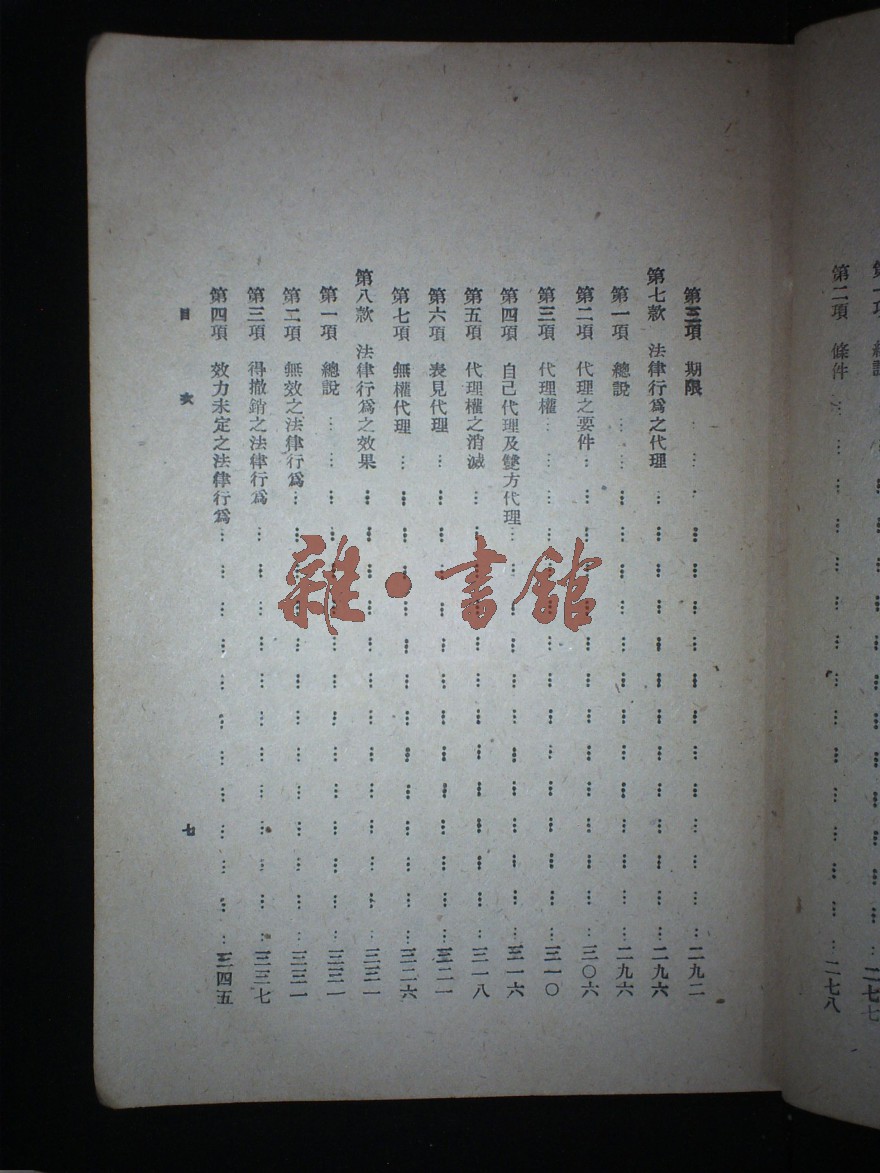 第一項 總說 … 二七七
第二項 條件 … 二七八
第三項 期限 … 二九二
第七款 法律行爲之代理 … 二九六
第一項 總說 … 二九六
第二項 代理之要件 … 三〇六
第三項 代理權 … 三一〇
第四項 自己代理及雙方代理 … 三一六
第五項 代理權之消滅 … 三一八
第六項 表見代理 … 三二一
第七項 無權代理 … 三二六
第八款 法律行爲之效果 … 三三一
第一項 總說 … 三三一
第二項 無效之法律行爲 … 三三一
第三項 得撤銷之法律行爲 … 三三七
第四項 效力未定之法律行爲 … 三四五
目 次 七
雜·書館